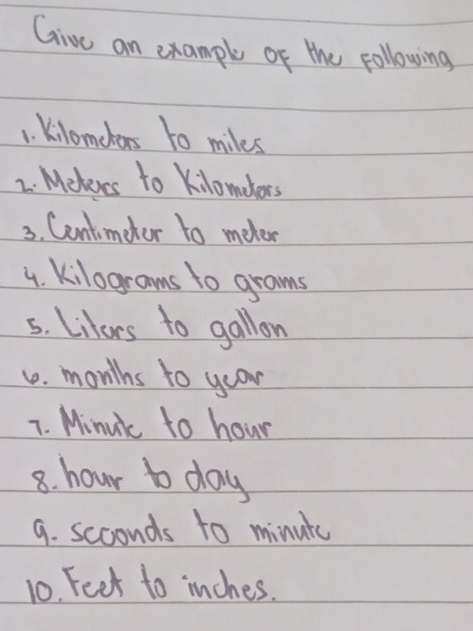 Give an example of the following
1. Kilometers to miles
2. Meters to Kilometers
3. Centimeter to meter
4. Kilograms to grams
5. Liters to gallon
6. months to year
7. Minute to hour
8. hour to day
9. seconds to minute
10. Feet to inches.